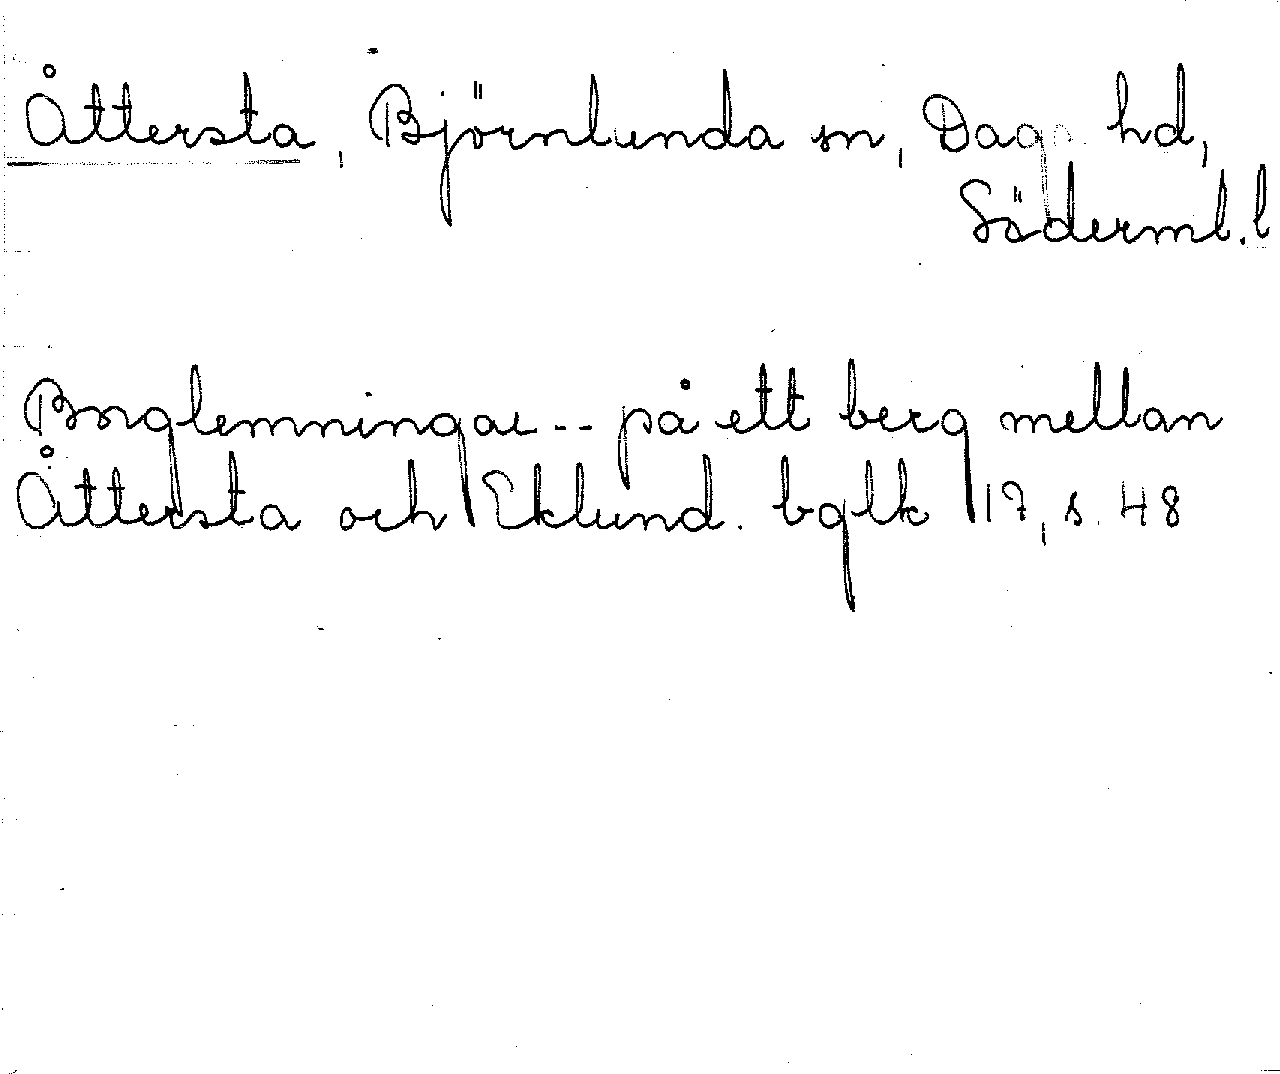 Åttersta, Björnlunda sn, Daga hd,
Söderml. l
Borglemningar -- på ett berg mellan
Åttersta och Eklund. bglk 17, s. 48